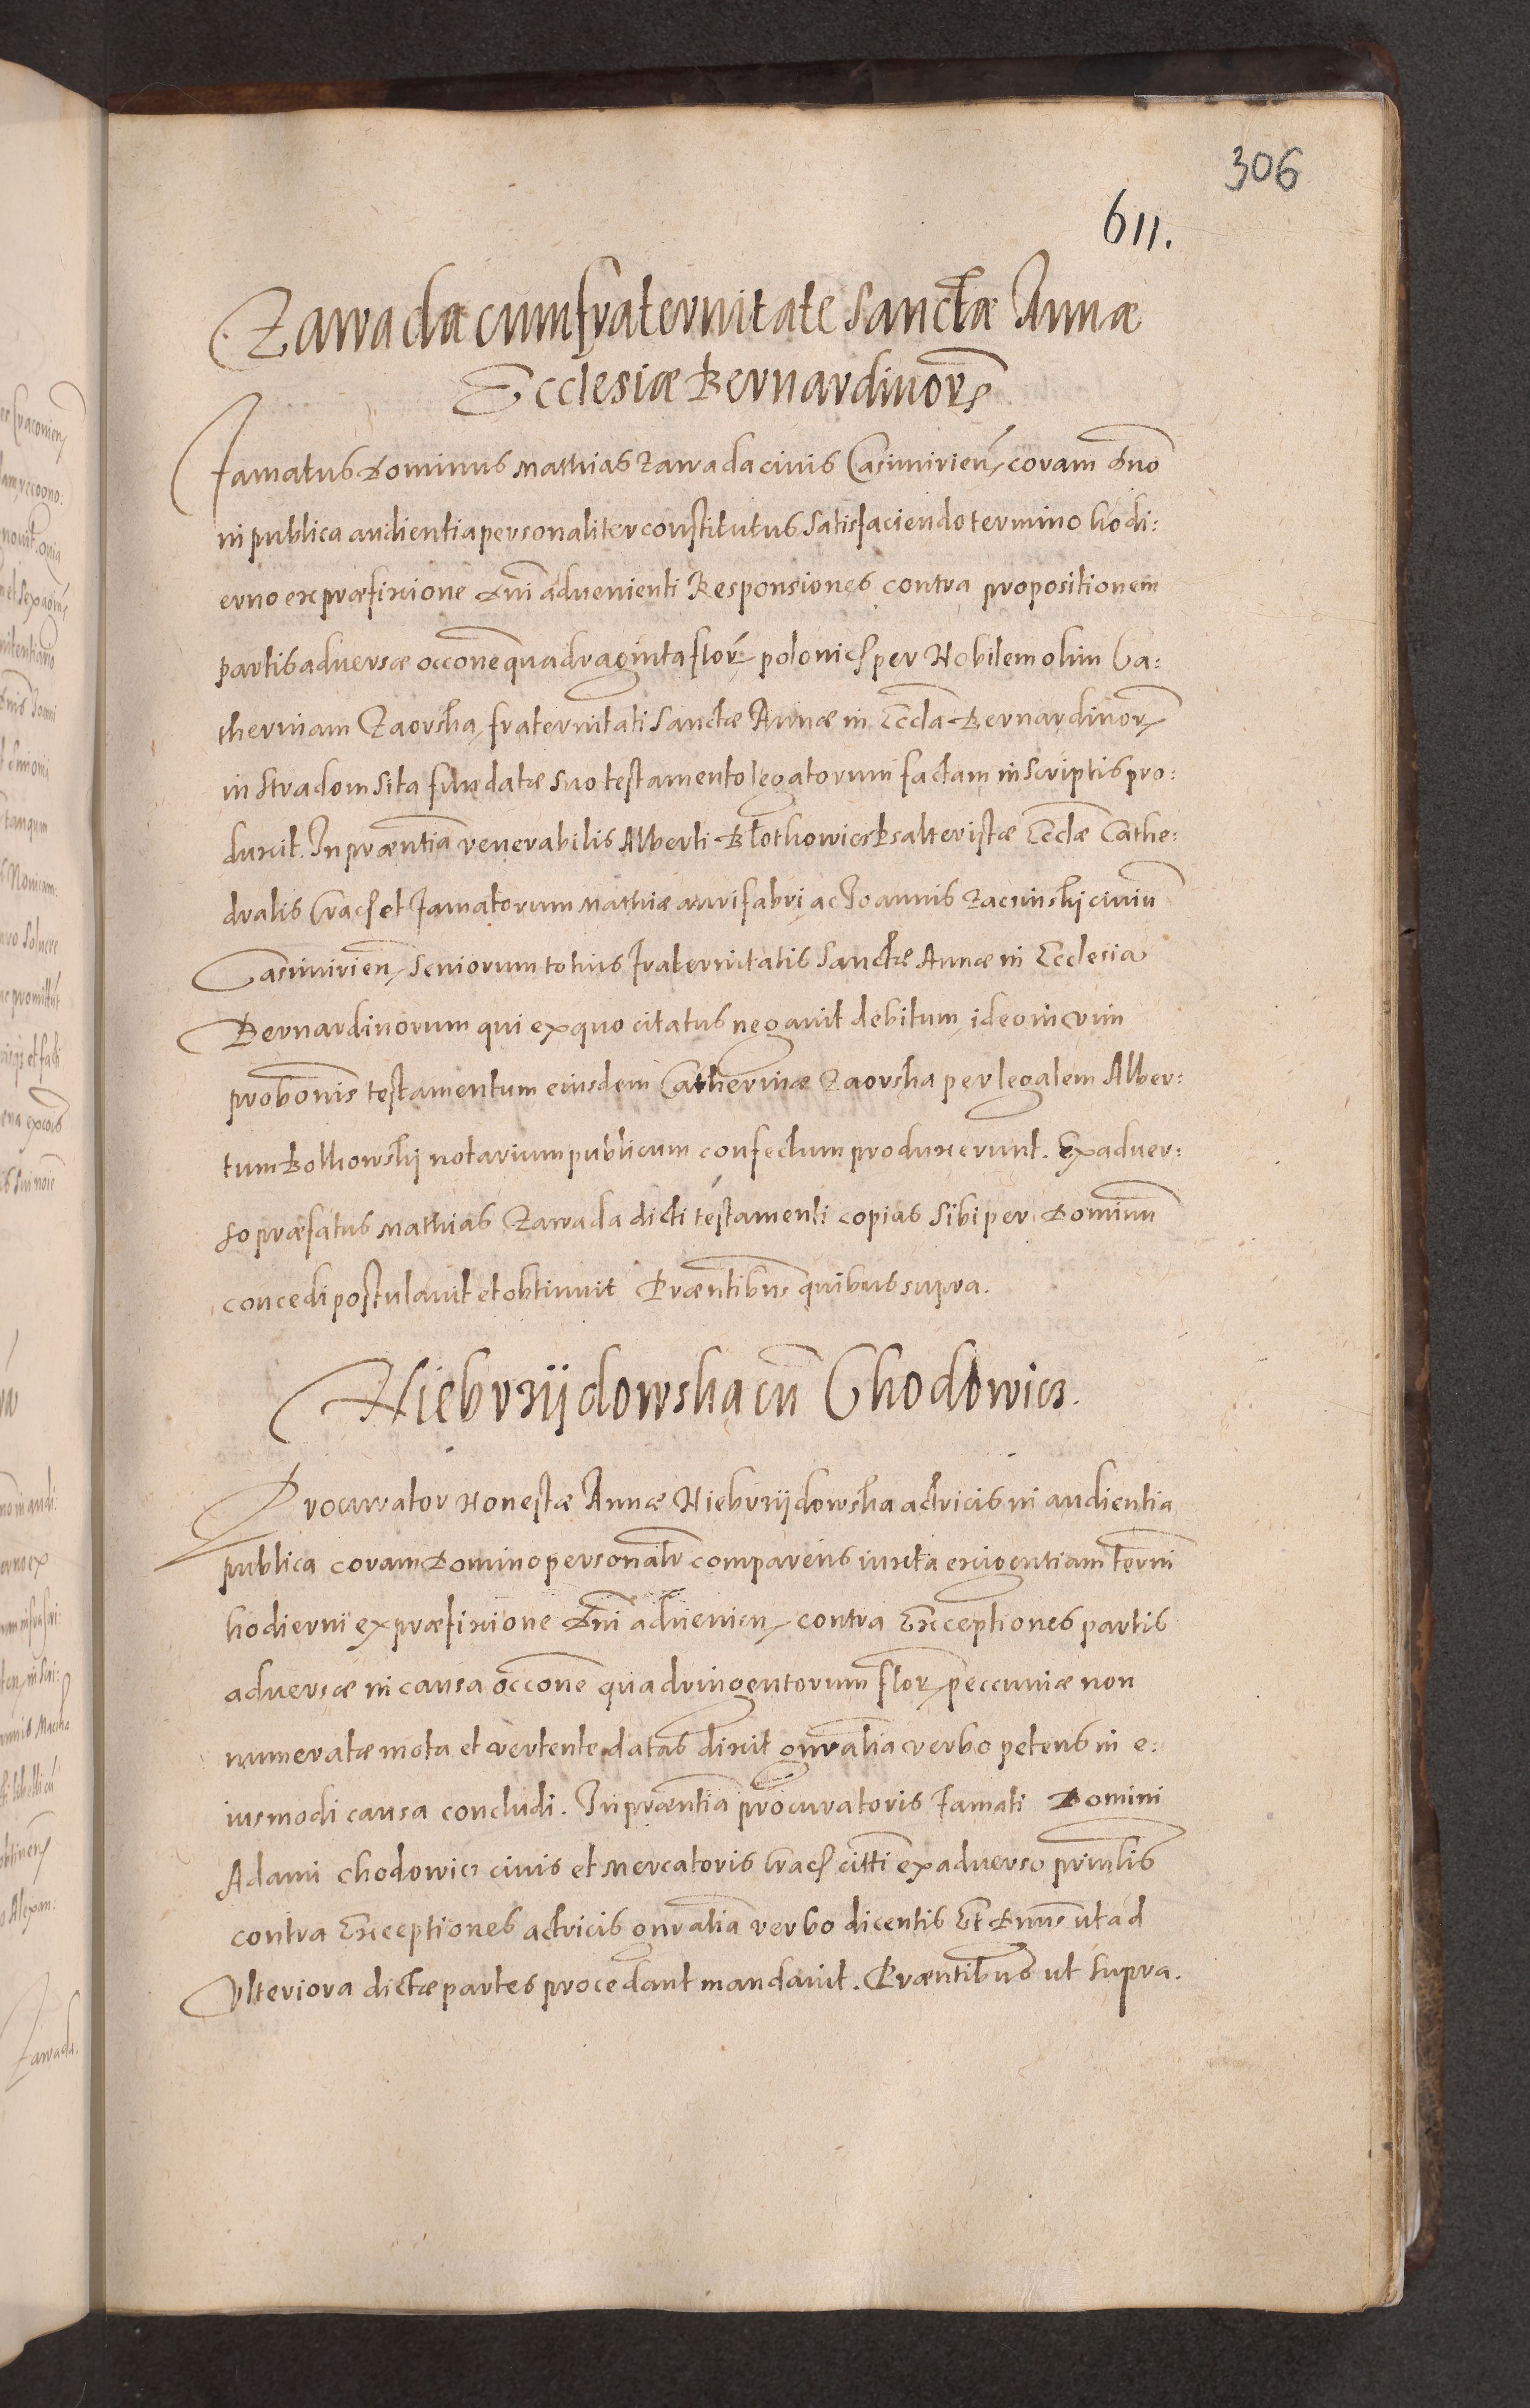 306
611.
Zawada cum fraternitate Sanctæ Annæ
Ecclesiæ Bernardinor
Famatus Dominus Mathias Zawada civis Casimirien coram dno
in publica audientia personaliter constitutus Satisfaciendo termino hodi:
erno ex præfixione dni advenienti Responsiones contra propositionem
partis adversæ occone quadraginta flor polonic per Nobilem olim Ca:
therinam Zaorska, fraternitati Sanctæ Annæ in Eccla Bernardinor
in Stradom sita fundatæ suo testamento legatorum factam in scriptis pro:
duxit. In præntia venerabilis Alberti Blothowicz Psalteristæ Ecclæ Cathe:
dralis Crac et famatorum Mathiæ aurifabri ac Joannis Zaczinskij civiu
Casimirien, Seniorum totius fraternitatis Sanctæ Annæ in Ecclesia
Bernardinorum qui ex quo citatus negavit debitum, ideo in vim
probonis testamentum eiusdem Catherinæ Zaorska per legalem Alber:
tum Bolkowskij notarium publicum confectum produxerunt. Ex adver:
so præfatus Mathias Zawada dicti testamenti copias sibi per Dominu
concedi postulavit et obtinuit Præntibus quibus supra.
Niebrzijdowska cu Chodowicz.
Procurator Honestæ Annæ Niebrzijdowska actricis in audientia
publica coram Domino personalr comparens iuxta exigentiam termi
hodierni ex præfixione Dni advenien, contra Exceptiones partis
adversæ in causa occone quadringentorum flor, peccuniæ non
numeratæ mota et vertente datas dixit gnralia verbo petens in e:
iusmodi causa concludi. In præntia procuratoris famati Domini
Adami Chodowicz civis et Mercatoris Crac citti ex adverso prinlis
contra Exceptiones actricis gnralia verbo dicentis Et Dnus ut ad
Ulteriora dictæ partes procedant mandavit. Præntibus ut supra.